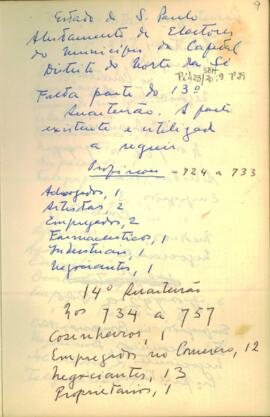 9
Estado de S. Paulo
Alistamento de Eleitores
do Município da Capital
Distrito do Norte da Sé
Falta parte do 13º
Quarteirão. A parte
existente é utilizada
a seguir.
Profissões - 724 a 733
Advogados, 1
Artistas, 2
Empregados, 2
Farmaceuticos, 1
Industriais, 1
Negociantes, 1
14º Quarteirão
Nos 734 a 757
Cosinheiros, 1
Empregados no Comercio, 12
Negociantes, 13
Proprietarios, 1